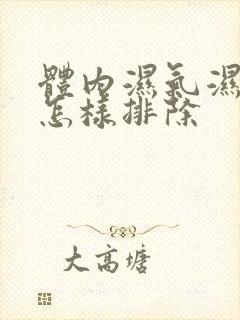 體內濕氣濕
怎樣排除
大高塘